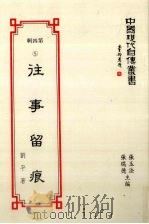 中國現代自傳叢書
張玉法
張瑞德 主編
第四輯
⑤
往事留痕
劉平著